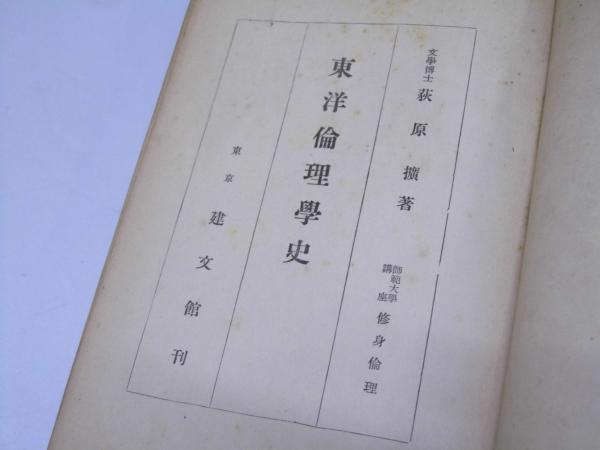 文學博士 荻原擴著
師範大學講座 修身倫理
東洋倫理學史
東京 建文館刊